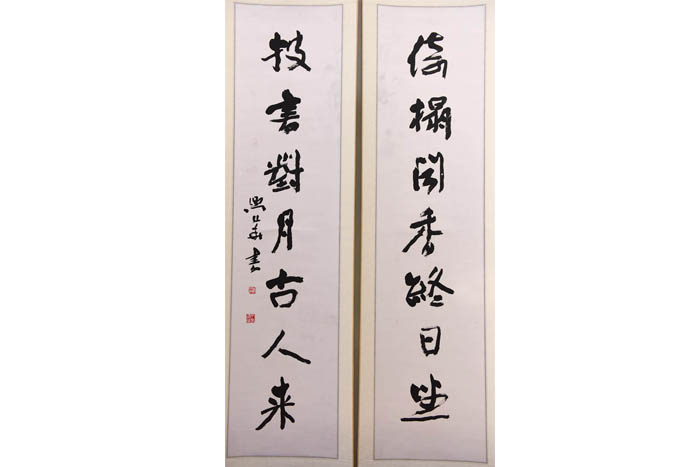 倚榻闻香終日坐
披書對月古人来
書